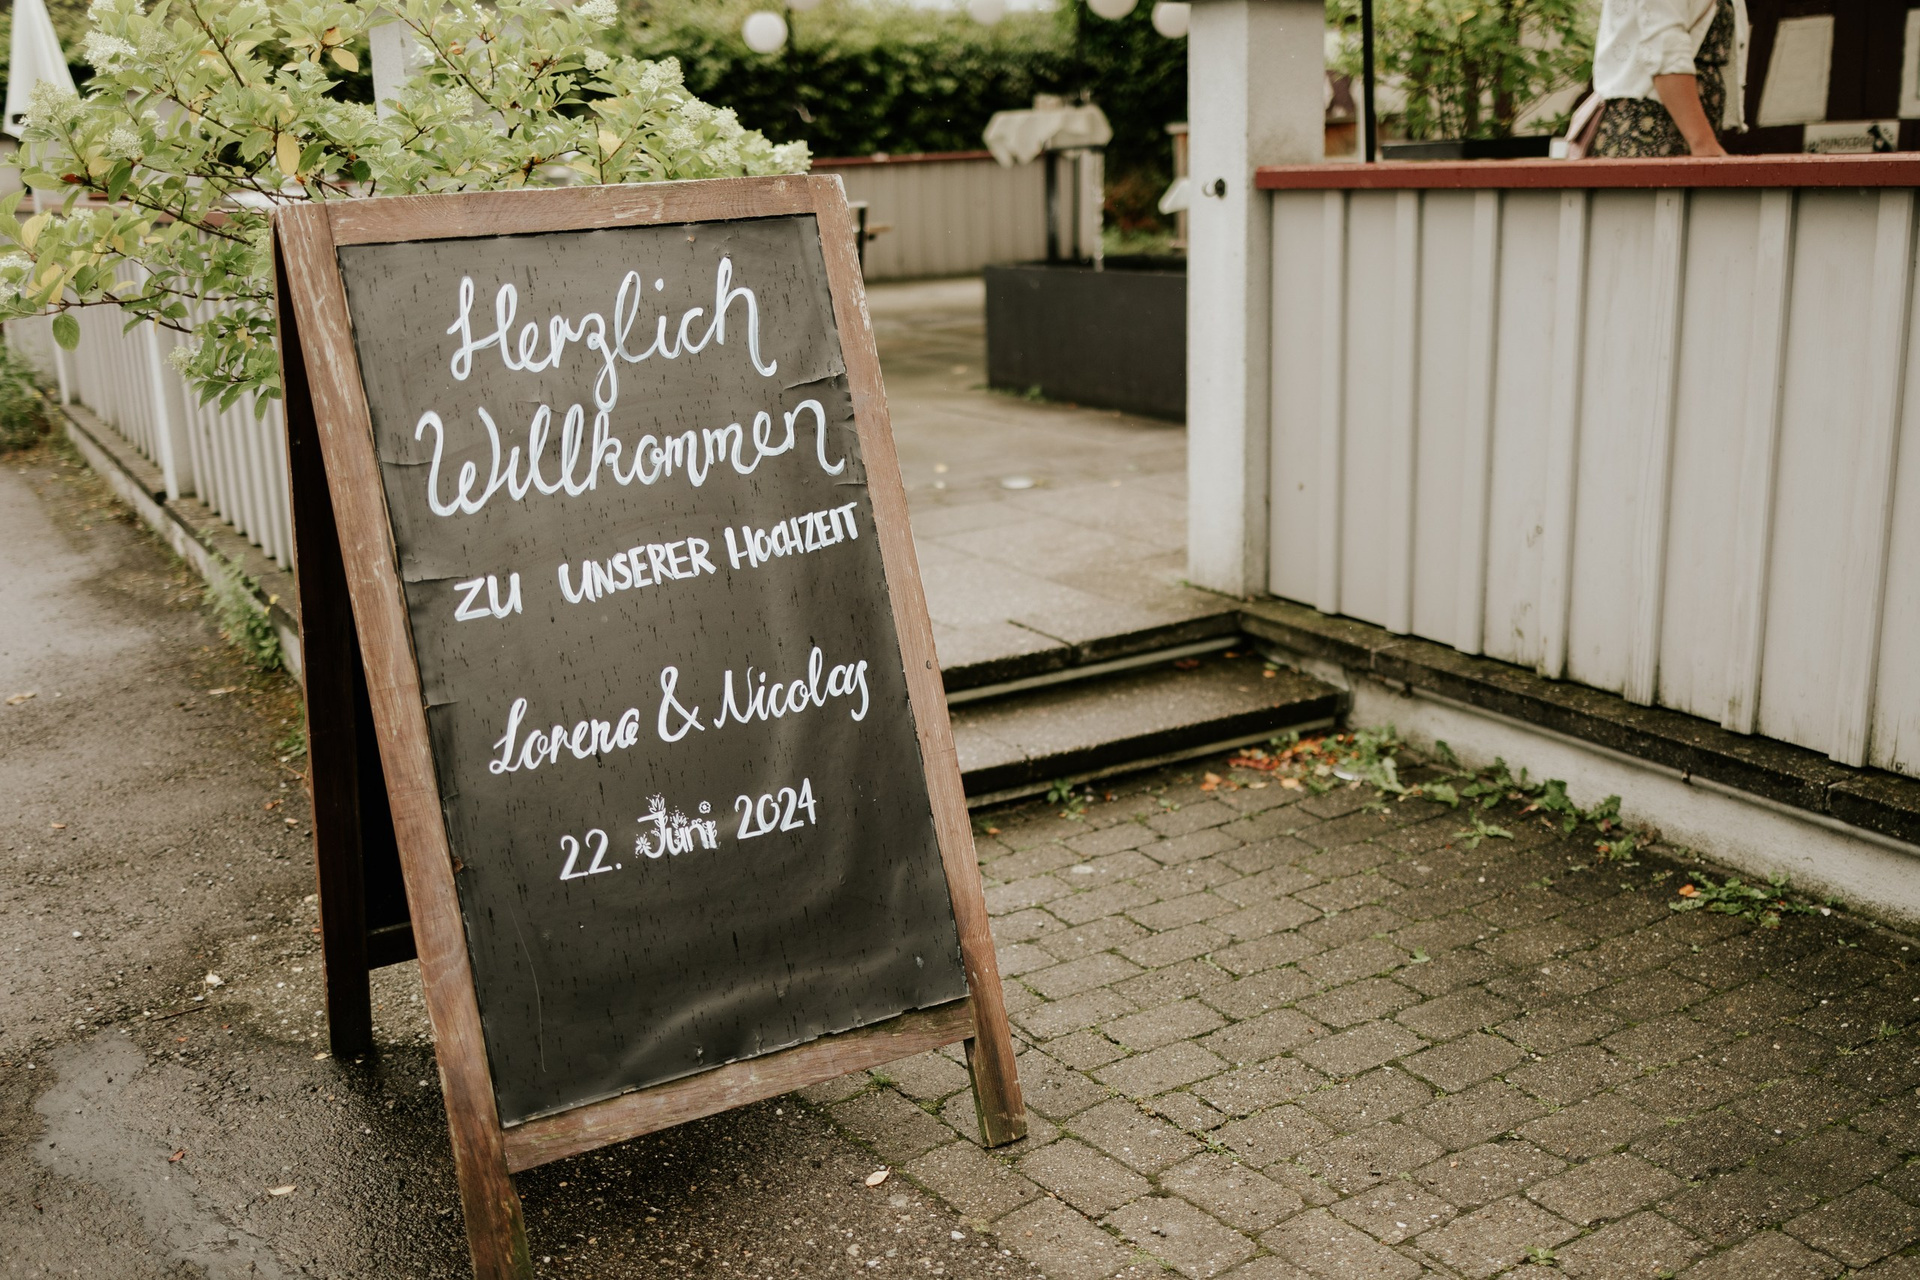 Herzlich
Willkommen
ZU UNSERER HOCHZEIT
Lorena & Nicolas
22. Juni 2024